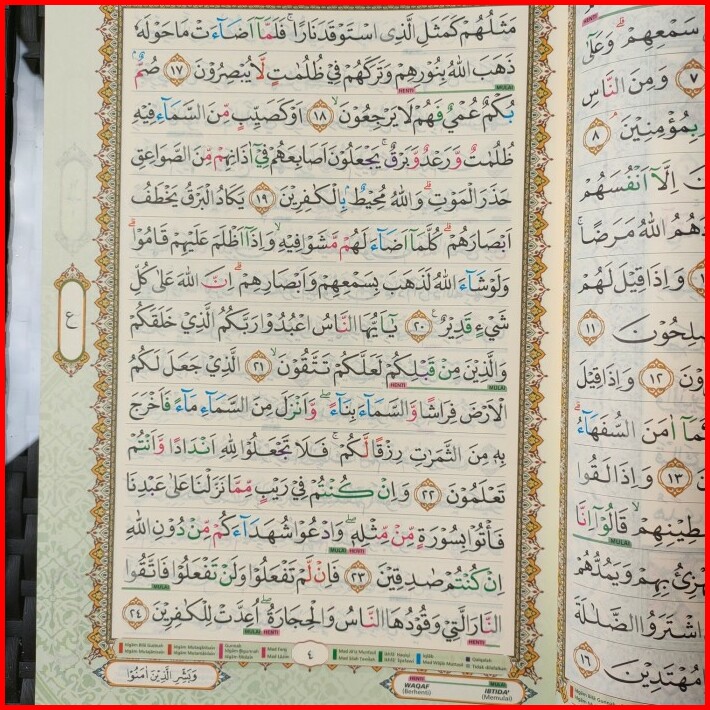 مَثَلُهُمْ كَمَثَلِ الَّذِى اسْتَوْقَدَ نَارًاۚ فَلَمَّآ اَضَاۤءَتْ مَا حَوْلَهٗ
ذَهَبَ اللّٰهُ بِنُوْرِهِمْ وَتَرَكَهُمْ فِيْ ظُلُمٰتٍ لَّا يُبْصِرُوْنَ ١٧ صُمٌّۢ
بُكْمٌ عُمْيٌ فَهُمْ لَا يَرْجِعُوْنَۙ ١٨ اَوْ كَصَيِّبٍ مِّنَ السَّمَاۤءِ فِيْهِ
ظُلُمٰتٌ وَّرَعْدٌ وَّبَرْقٌۚ يَجْعَلُوْنَ اَصَابِعَهُمْ فِيْٓ اٰذَانِهِمْ مِّنَ الصَّوَاعِقِ
حَذَرَ الْمَوْتِۗ وَاللّٰهُ مُحِيْطٌۢ بِالْكٰفِرِيْنَ ١٩ يَكَادُ الْبَرْقُ يَخْطَفُ
اَبْصَارَهُمْۗ كُلَّمَآ اَضَاۤءَ لَهُمْ مَّشَوْا فِيْهِۙ وَاِذَآ اَظْلَمَ عَلَيْهِمْ قَامُوْاۗ
وَلَوْ شَاۤءَ اللّٰهُ لَذَهَبَ بِسَمْعِهِمْ وَاَبْصَارِهِمْۗ اِنَّ اللّٰهَ عَلٰى كُلِّ
شَيْءٍ قَدِيْرٌ ٢٠ يٰٓاَيُّهَا النَّاسُ اعْبُدُوْا رَبَّكُمُ الَّذِيْ خَلَقَكُمْ
وَالَّذِيْنَ مِنْ قَبْلِكُمْ لَعَلَّكُمْ تَتَّقُوْنَۙ ٢١ الَّذِيْ جَعَلَ لَكُمُ
الْاَرْضَ فِرَاشًا وَّالسَّمَاۤءَ بِنَاۤءًۖ وَّاَنْزَلَ مِنَ السَّمَاۤءِ مَاۤءً فَاَخْرَجَ
بِهٖ مِنَ الثَّمَرٰتِ رِزْقًا لَّكُمْۚ فَلَا تَجْعَلُوْا لِلّٰهِ اَنْدَادًا وَّاَنْتُمْ
تَعْلَمُوْنَ ٢٢ وَاِنْ كُنْتُمْ فِيْ رَيْبٍ مِّمَّا نَزَّلْنَا عَلٰى عَبْدِنَا
فَأْتُوْا بِسُوْرَةٍ مِّنْ مِّثْلِهٖۖ وَادْعُوْا شُهَدَاۤءَكُمْ مِّنْ دُوْنِ اللّٰهِ
اِنْ كُنْتُمْ صٰدِقِيْنَ ٢٣ فَاِنْ لَّمْ تَفْعَلُوْا وَلَنْ تَفْعَلُوْا فَاتَّقُوا
النَّارَ الَّتِيْ وَقُوْدُهَا النَّاسُ وَالْحِجَارَةُۖ اُعِدَّتْ لِلْكٰفِرِيْنَ ٢٤
٤
وَبَشِّرِ الَّذِيْنَ اٰمَنُوْا
WAQAF (Berhenti)
IBTIDA' (Memulai)
ع
سَمْعِهِمْۗ وَعَلٰٓى
٧ وَمِنَ النَّاسِ
بِمُؤْمِنِيْنَۘ ٨
اِلَّآ اَنْفُسَهُمْ
اللّٰهُ مَرَضًاۚ
وَاِذَا قِيْلَ لَهُمْ
١١
١٢ وَاِذَا قِيْلَ
اٰمَنَ السُّفَهَاۤءُۗ
١٣ وَاِذَا لَقُوا
قَالُوْٓا اِنَّا
بِهِمْ وَيَمُدُّهُمْ
اشْتَرَوُا الضَّلٰلَةَ
مُهْتَدِيْنَ ١٦